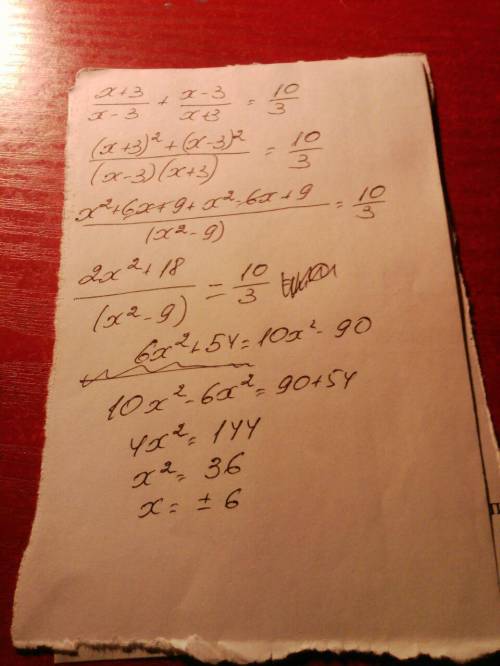 x+3/x-3 + x-3/x+3 = 10/3
(x+3)²+(x-3)²/(x-3)(x+3) = 10/3
x²+6x+9+x²-6x+9/(x²-9) = 10/3
2x²+18/(x²-9) = 10/3
6x²+54=10x²-90
10x²-6x²=90+54
4x²=144
x²=36
x=±6